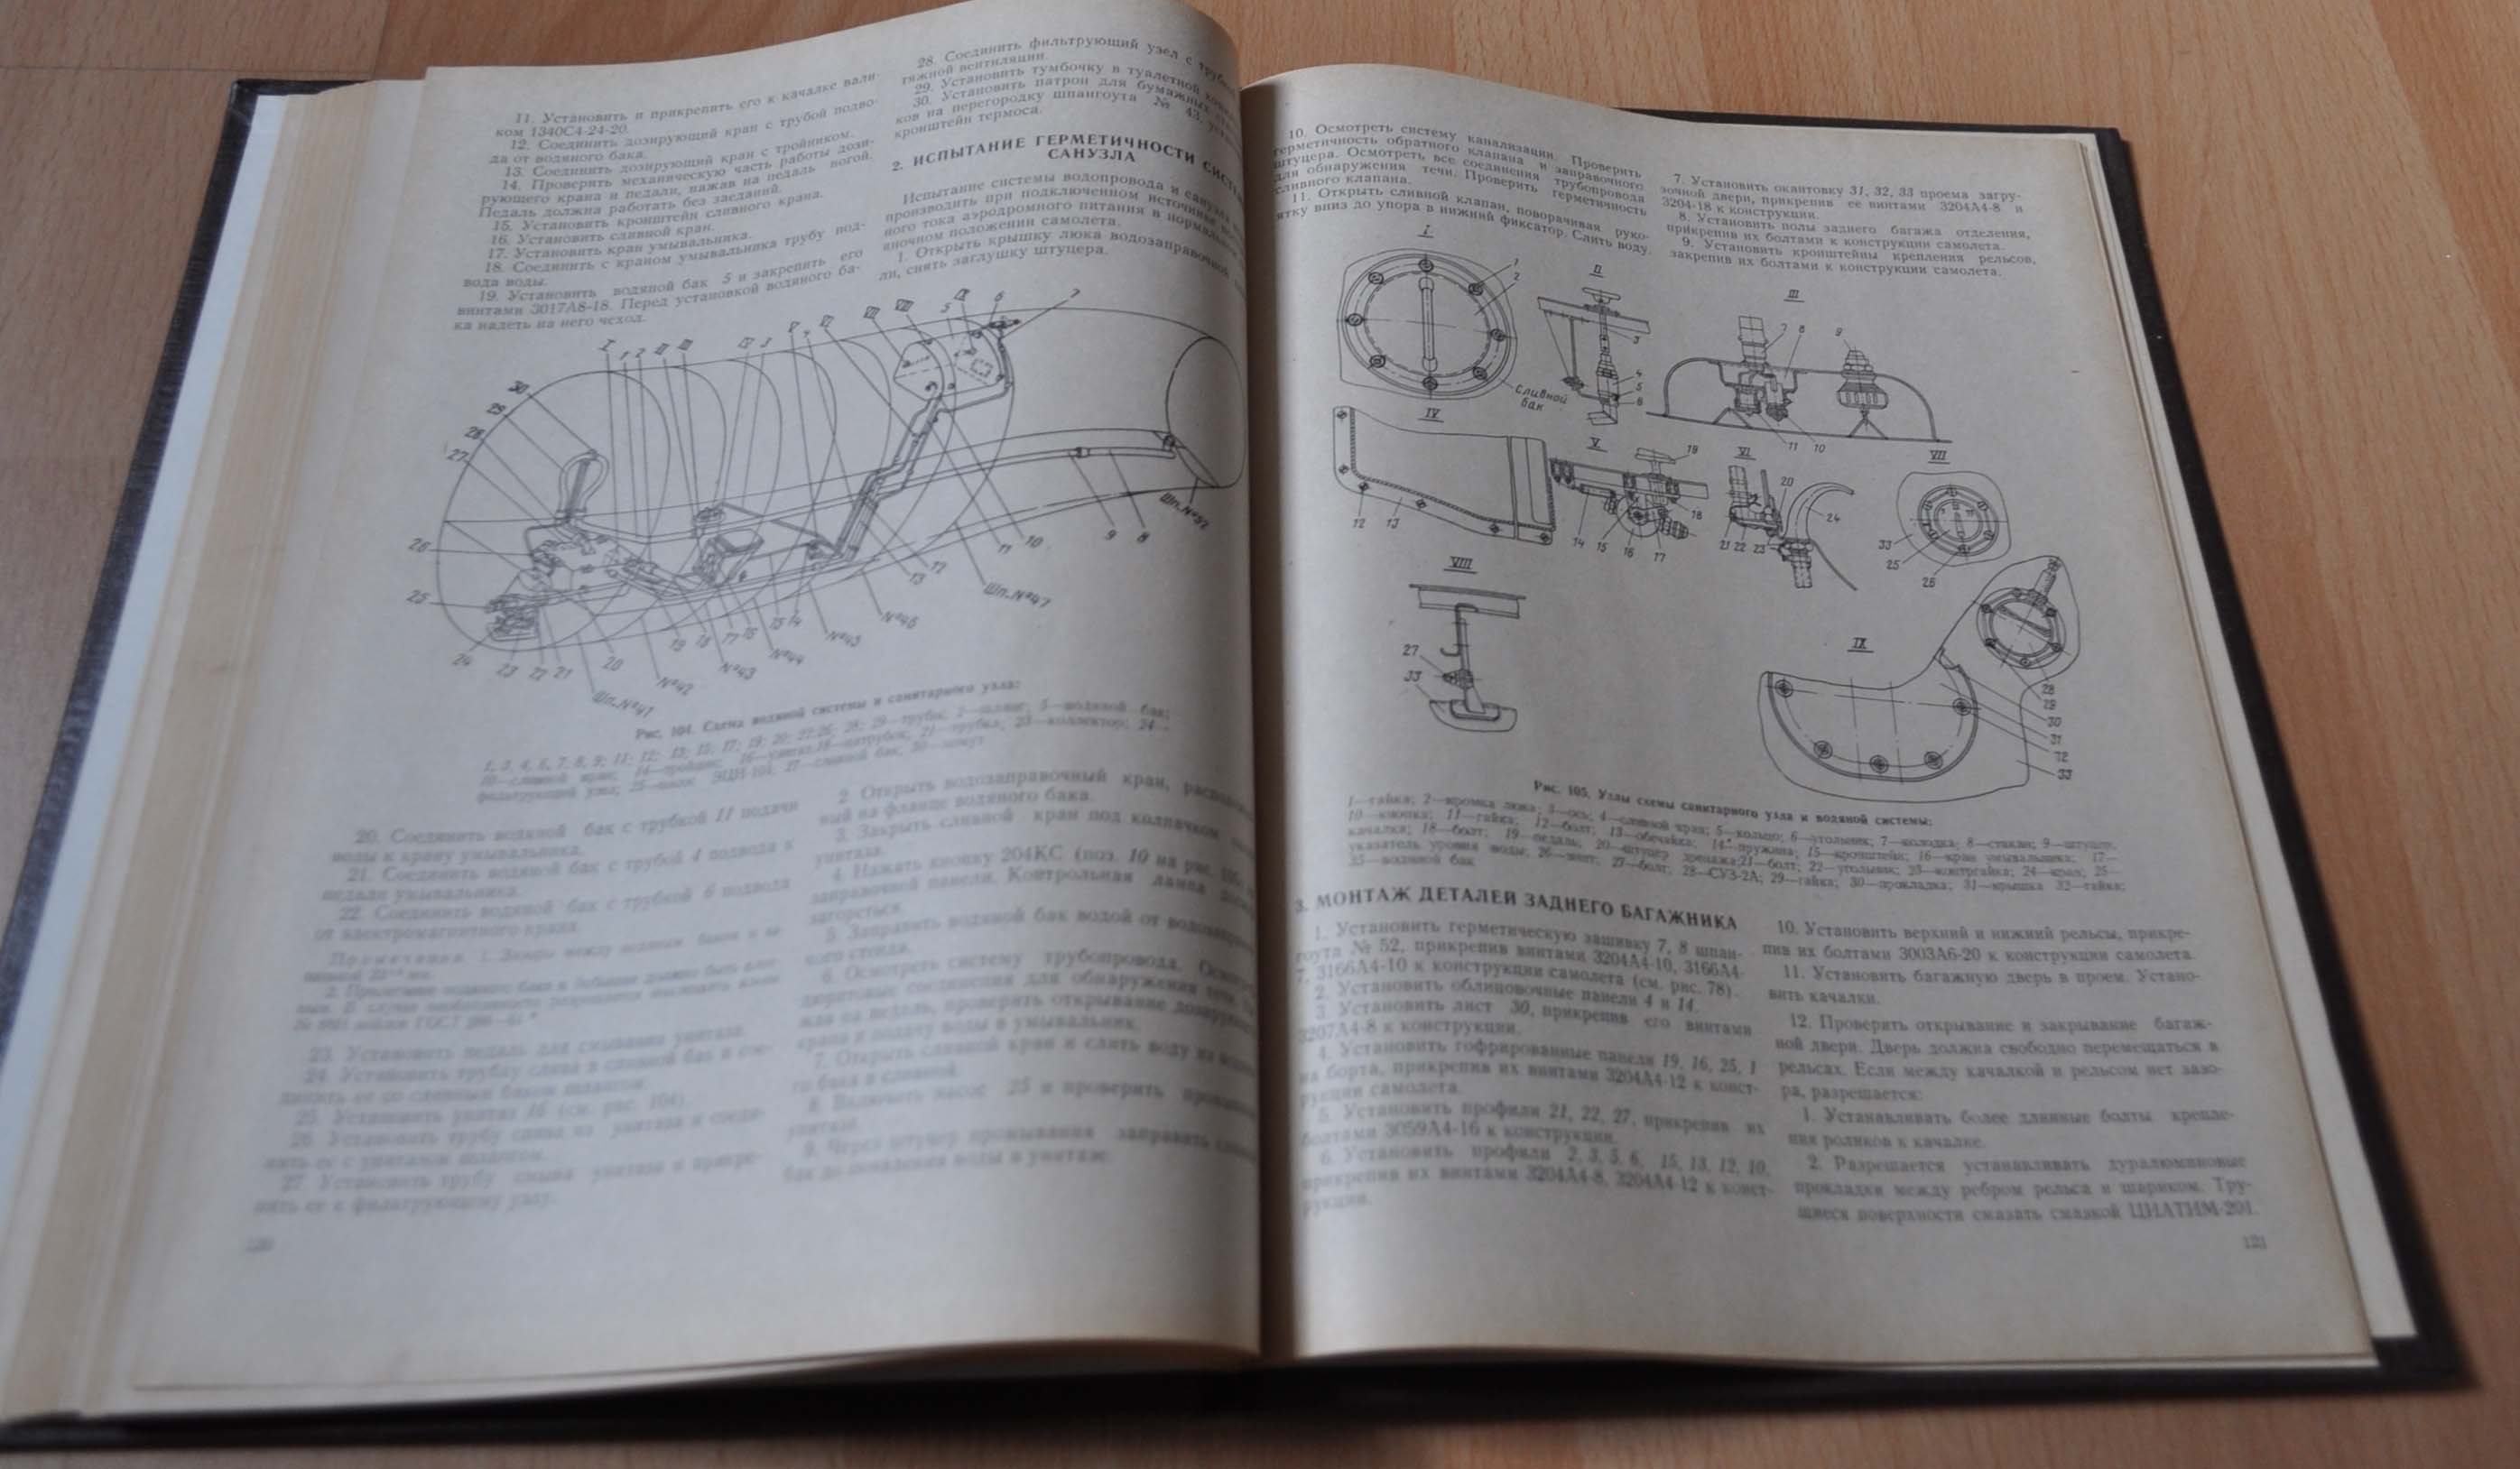 11. Установить и прикрепить его к качалке вали-
ком 1340С4-24-20.
12. Соединить дозирующий кран с трубой подво-
да от водяного бака.
13. Соединить дозирующий кран с тройником.
14. Проверить механическую часть работы дози-
рующего крана и педали, нажав на педаль ногой.
Педаль должна работать без заеданий.
15. Установить кронштейн сливного крана.
16. Установить сливной кран.
17. Установить кран умывальника.
18. Соединить с краном умывальника трубу под-
вода воды.
19. Установить водяной бак 5 и закрепить его
винтами 3017А8-18. Перед установкой водяного ба-
ка надеть на него чехол.
28. Соединить фильтрующий узел с
тяжной вентиляции.
29. Установить тумбочку в туалетной
30. Установить патрон для бумажных
ков на перегородку шпангоута № 43,
кронштейн термоса.
2. ИСПЫТАНИЕ ГЕРМЕТИЧНОСТИ
САНУЗЛА
Испытание системы водопровода и санузла
производить при подключенном источнике
ного тока аэродромного питания в
яночном положении самолета.
1. Открыть крышку люка водозаправочной
ли, снять заглушку штуцера.
I 1 2 II III IV 3 V 4 VI VII VIII 5 IX 6 7
30
29
28
27
26
25
24 23 22 21 20 19 18 17 16 15 14 13 12 11 10 9 8
Шп.№41 №42 №43 №44 №45 №46 Шп.№47 Шп.№52
Рис. 104. Схема водяной системы и санитарного узла:
фильтрующий узел; 25—насос ЭЦН-104, 27—сливной бак, 30—хомут
20. Соединить водяной бак с трубкой 11 подачи
воды к крану умывальника.
21. Соединить водяной бак с трубой 4 подвода к
педали умывальника.
22. Соединить водяной бак с трубкой 6 подвода
от электромагнитного крана.
23. Установить педаль для смывания унитаза.
24. Установить трубку слива в сливной бак и сое-
динить ее со сливным баком шлангом.
25. Установить унитаз 16 (см. рис. 104).
26. Установить трубу слива из унитаза и соеди-
нить ее с унитазом шлангом.
27. Установить трубу смыва унитаза и прикре-
пить ее к фильтрующему узлу.
120
2. Открыть водозаправочный кран,
ный на фланце водяного бака.
3. Закрыть сливной кран под колпачком
унитаза.
4. Нажать кнопку 204КС (поз. 10 на рис.
заправочной панели. Контрольная лампа
загореться.
5. Заправить водяной бак водой от
ного стенда.
6. Осмотреть систему трубопровода.
дюритовые соединения для обнаружения течи.
жав на педаль, проверить открывание
крана и подачу воды в умывальник.
7. Открыть сливной кран и слить воду из
го бака в сливной.
8. Включить насос 25 и проверить
унитаза.
9. Через штуцер промывания заправить
бак до появления воды в унитазе.
10. Осмотреть систему канализации. Проверить
герметичность обратного клапана и заправочного
штуцера. Осмотреть все соединения трубопровода
для обнаружения течи. Проверить герметичность
сливного клапана.
11. Открыть сливной клапан, поворачивая руко-
ятку вниз до упора в нижний фиксатор. Слить воду.
7. Установить окантовку 31, 32, 33 проема загру-
зочной двери, прикрепив ее винтами 3204А4-8 и
3204-18 к конструкции.
8. Установить полы заднего багажа отделения,
прикрепив их болтами к конструкции самолета.
9. Установить кронштейны крепления рельсов,
закрепив их болтами к конструкции самолета.
I 1 2 Сливной бак
II 3 4 5 6
III 7 8 9 11 10
IV 12 13
V 19 14 15 16 17 18
VI 20 24 21 22 23
VII 33 25 26
VIII 27 33
IX 28 29 30 31 32 33
Рис. 105. Узлы схемы санитарного узла и водяной системы:
1—гайка; 2—кромка люка; 3—ось; 4—сливной кран; 5—кольцо; 6—угольник; 7—колодка; 8—стакан; 9—штуцер;
10—кнопка; 11—гайка; 12—болт; 13—обечайка; 14—пружина; 15—кронштейн; 16—кран умывальника; 17—
качалка; 18—болт; 19—педаль; 20—штуцер дренажа; 21—болт; 22—угольник; 23—контргайка; 24—кран; 25—
указатель уровня воды; 26—винт; 27—болт; 28—СУЗ-2А; 29—гайка; 30—прокладка; 31—крышка 32—гайка;
33—водяной бак
3. МОНТАЖ ДЕТАЛЕЙ ЗАДНЕГО БАГАЖНИКА
1. Установить герметическую зашивку 7, 8 шпан-
гоута № 52, прикрепив винтами 3204А4-10, 3166А4-
7, 3166А4-10 к конструкции самолета (см. рис. 78).
2. Установить облицовочные панели 4 и 14.
3. Установить лист 30, прикрепив его винтами
3207А4-8 к конструкции.
4. Установить гофрированные панели 19, 16, 25, 1
на борта, прикрепив их винтами 3204А4-12 к конст-
рукции самолета.
5. Установить профили 21, 22, 27, прикрепив их
болтами 3059А4-16 к конструкции.
6. Установить профили 2, 3, 5, 6, 15, 13, 12, 10,
прикрепив их винтами 3204А4-8, 3204А4-12 к конст-
рукции.
10. Установить верхний и нижний рельсы, прикре-
пив их болтами 3003А6-20 к конструкции самолета.
11. Установить багажную дверь в проем. Устано-
вить качалки.
12. Проверить открывание и закрывание багаж-
ной двери. Дверь должна свободно перемещаться в
рельсах. Если между качалкой и рельсом нет зазо-
ра, разрешается:
1. Устанавливать более длинные болты крепле-
ния роликов к качалке.
2. Разрешается устанавливать дуралюминовые
прокладки между ребром рельса и шариком. Тру-
щиеся поверхности смазать смазкой ЦИАТИМ-201.
121